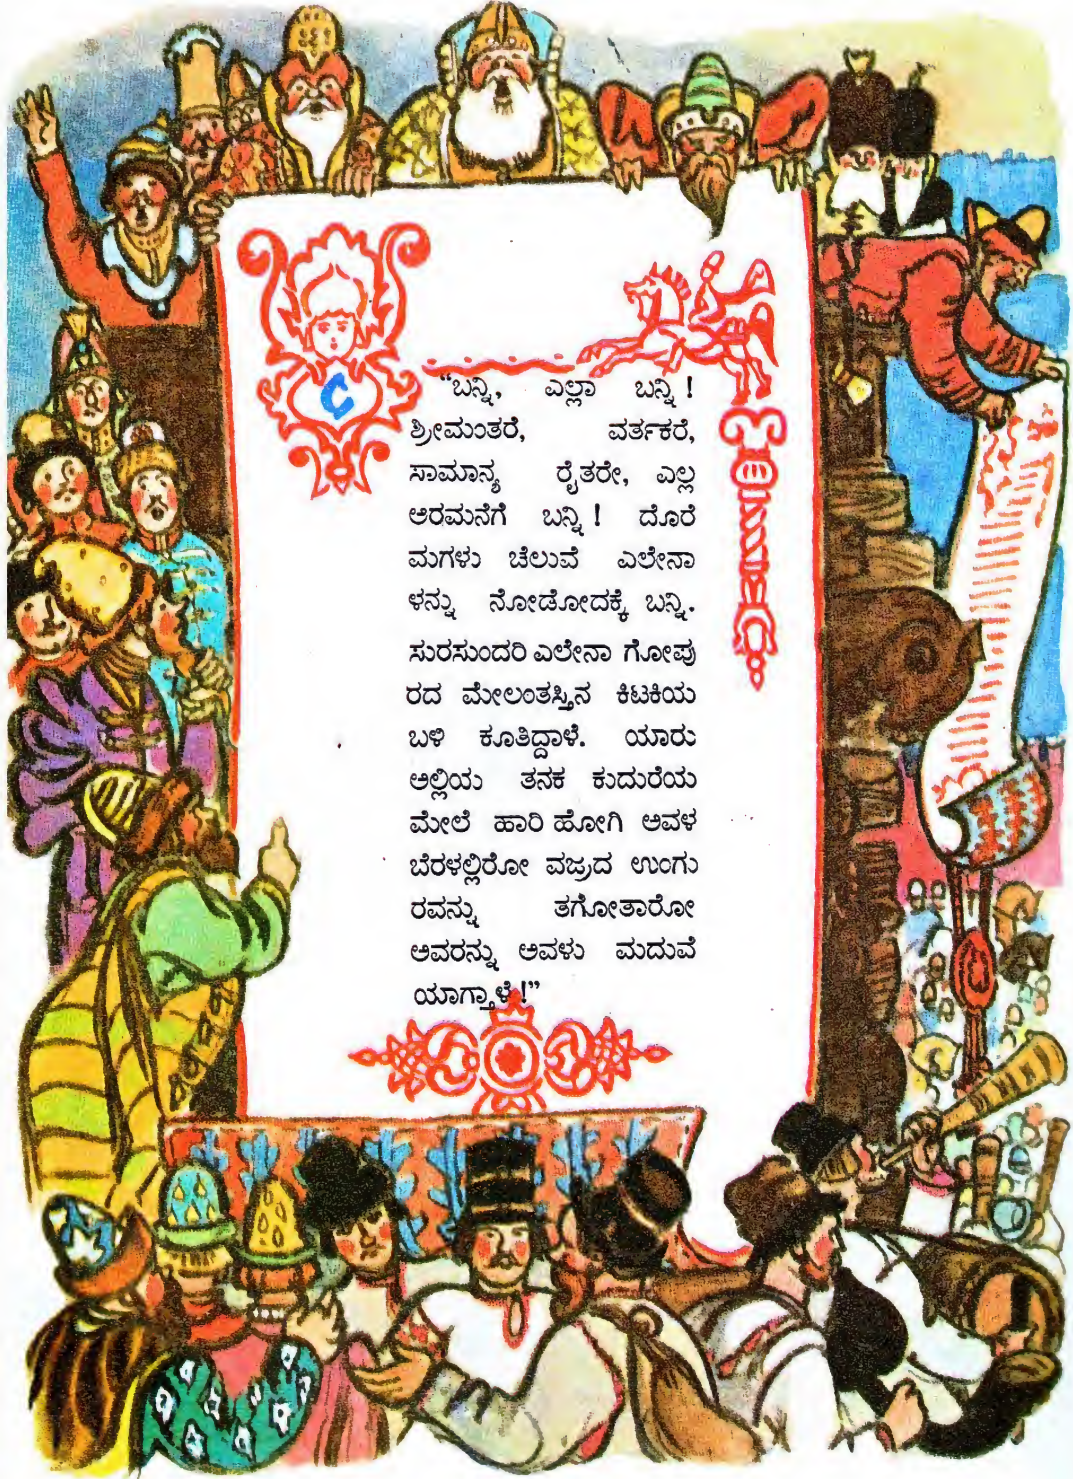 “ಬನ್ನಿ, ಎಲ್ಲಾ ಬನ್ನಿ !
ಶ್ರೀಮಂತರೆ, ವರ್ತಕರೆ,
ಸಾಮಾನ್ಯ ರೈತರೇ, ಎಲ್ಲ
ಅರಮನೆಗೆ ಬನ್ನಿ ! ದೊರೆ
ಮಗಳು ಚೆಲುವೆ ಎಲೇನಾ
ಳನ್ನು ನೋಡೋದಕ್ಕೆ ಬನ್ನಿ.
ಸುರಸುಂದರಿ ಎಲೇನಾ ಗೋಪು
ರದ ಮೇಲಂತಸ್ತಿನ ಕಿಟಕಿಯ
ಬಳಿ ಕೂತಿದ್ದಾಳೆ. ಯಾರು
ಅಲ್ಲಿಯ ತನಕ ಕುದುರೆಯ
ಮೇಲೆ ಹಾರಿ ಹೋಗಿ ಅವಳ
ಬೆರಳಲ್ಲಿರೋ ವಜ್ರದ ಉಂಗು
ರವನ್ನು ತಗೋತಾರೋ
ಅವರನ್ನು ಅವಳು ಮದುವೆ
ಯಾಗ್ತಾಳೆ !”